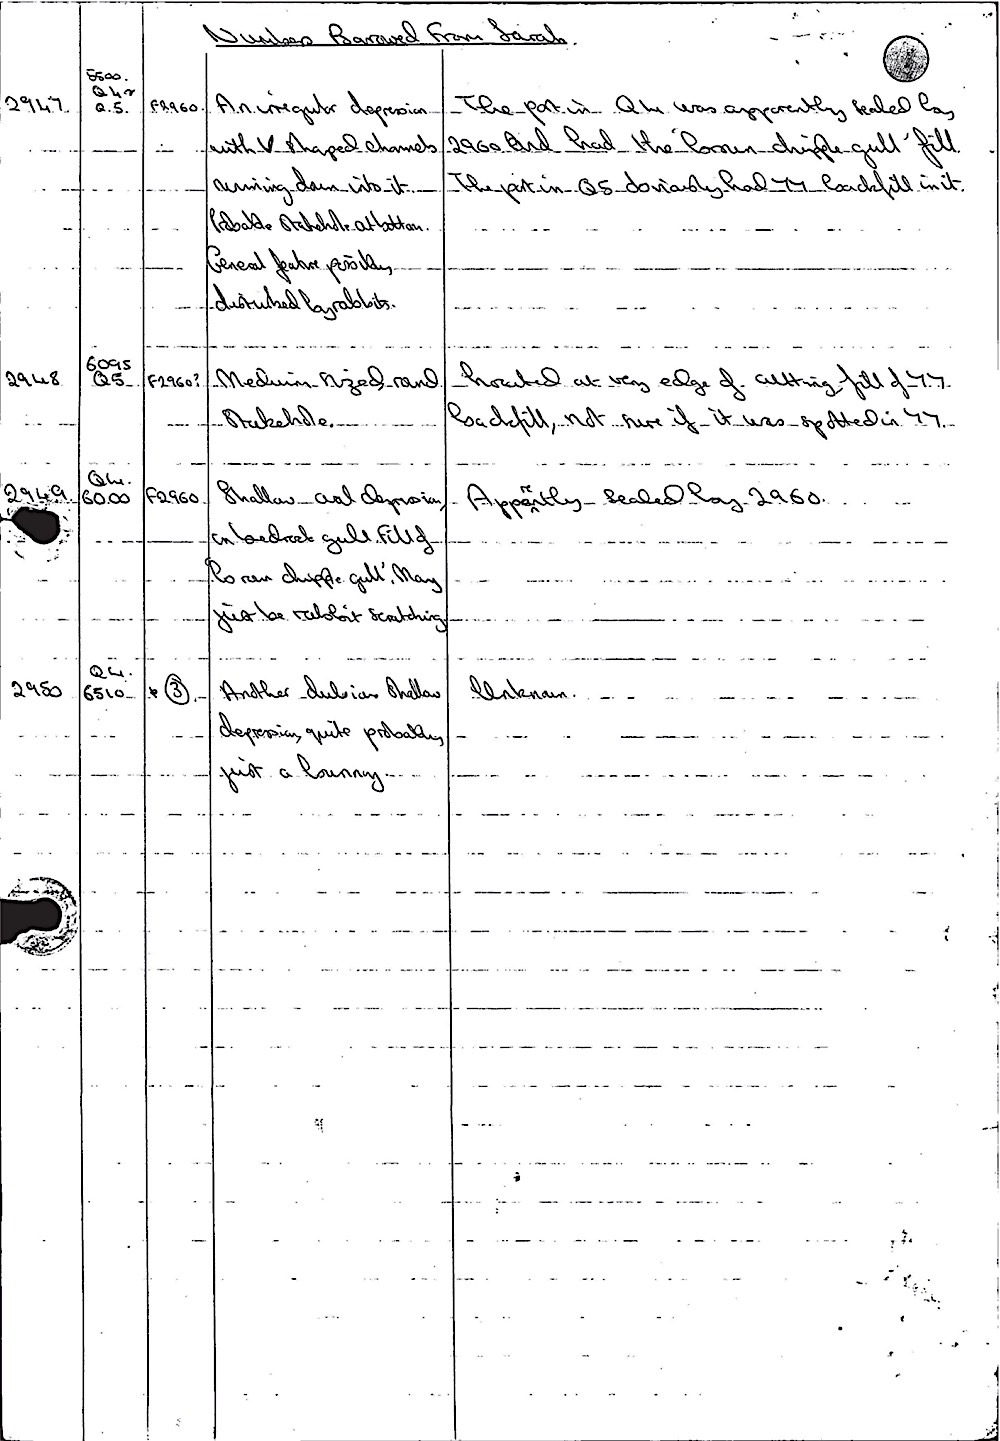 Numbers Borrowed From Sarah.
5500.
Q4 &
2947. Q.5. F2960. An irregular depression The part in Q4 was apparently sealed by
with V shaped channels 2960 and had the 'brown chipple gull' fill.
running down into it. The pit in Q5 obviously had 77 backfill in it.
Probable stakehole at bottom.
General feature possibly
disturbed by rabbits.
6095
2948 Q5 F2960? Medium sized, round Located at very edge of cutting fill of 77
stakehole. backfill, not sure if it was spotted in 77.
Q4.
2949. 6000 F2960. Shallow oval depression, Apparently sealed by 2960.
in bedrock gull. Fill of
'brown chipple gull'. May
just be rabbit scratching
Q4.
2950 6510 * 3. Another dubious shallow Unknown.
depression, quite probably
just a bunny.